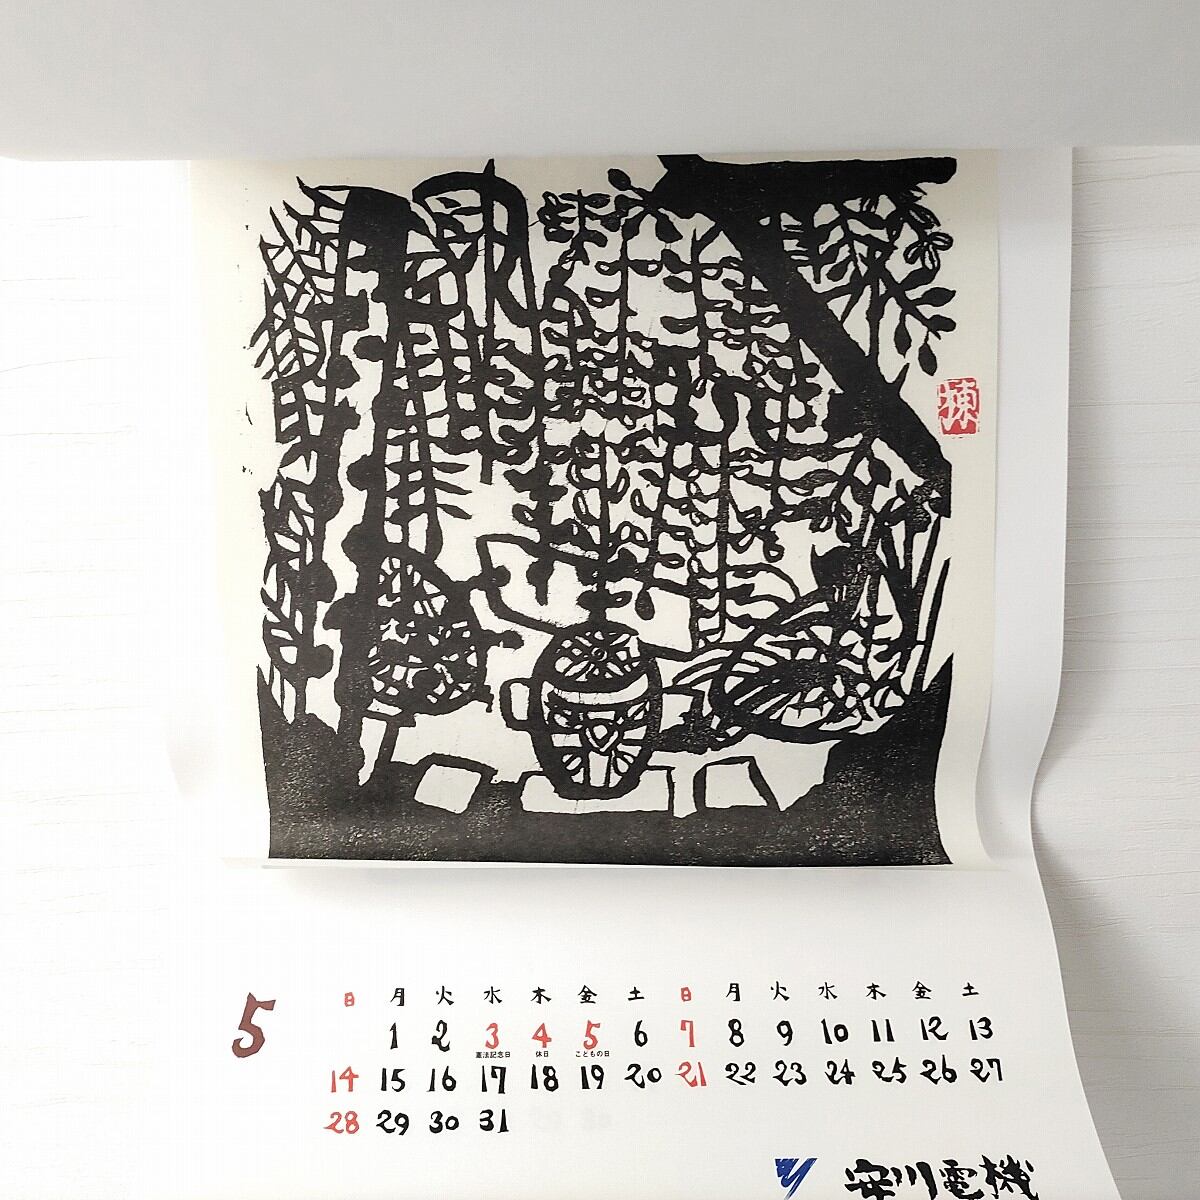 棟
5
日 月 火 水 木 金 土 日 月 火 水 木 金 土
1 2 3 4 5 6 7 8 9 10 11 12 13
憲法記念日 休日 こどもの日
14 15 16 17 18 19 20 21 22 23 24 25 26 27
28 29 30 31
安川電機